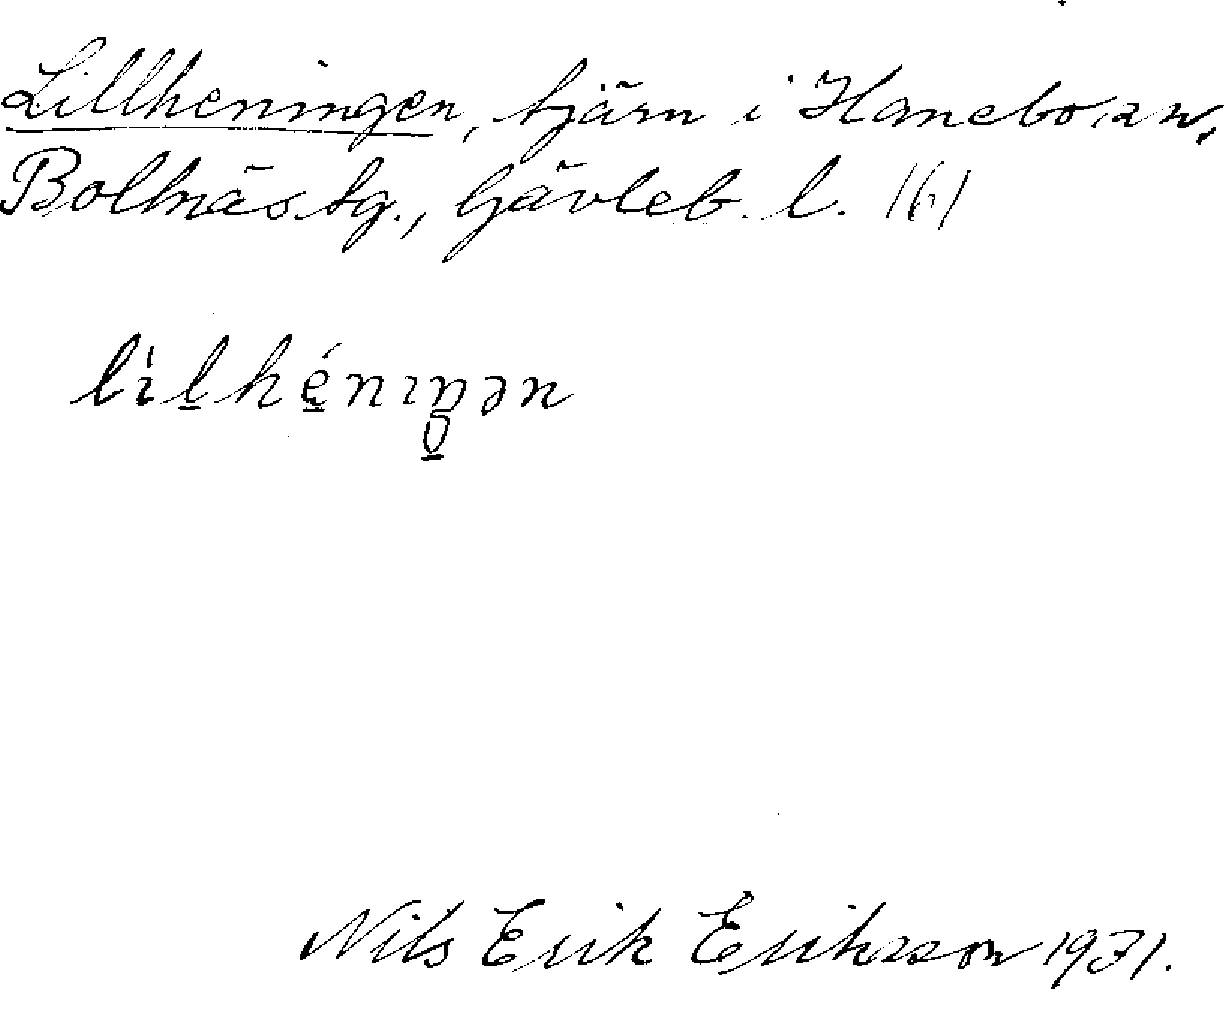 Lillheningen, tjärn i Hanebo sn,
Bollnäs tg., Gävleb. l.
lìl̠hé̠nıŋən
Nils Erik Eriksson 1931.